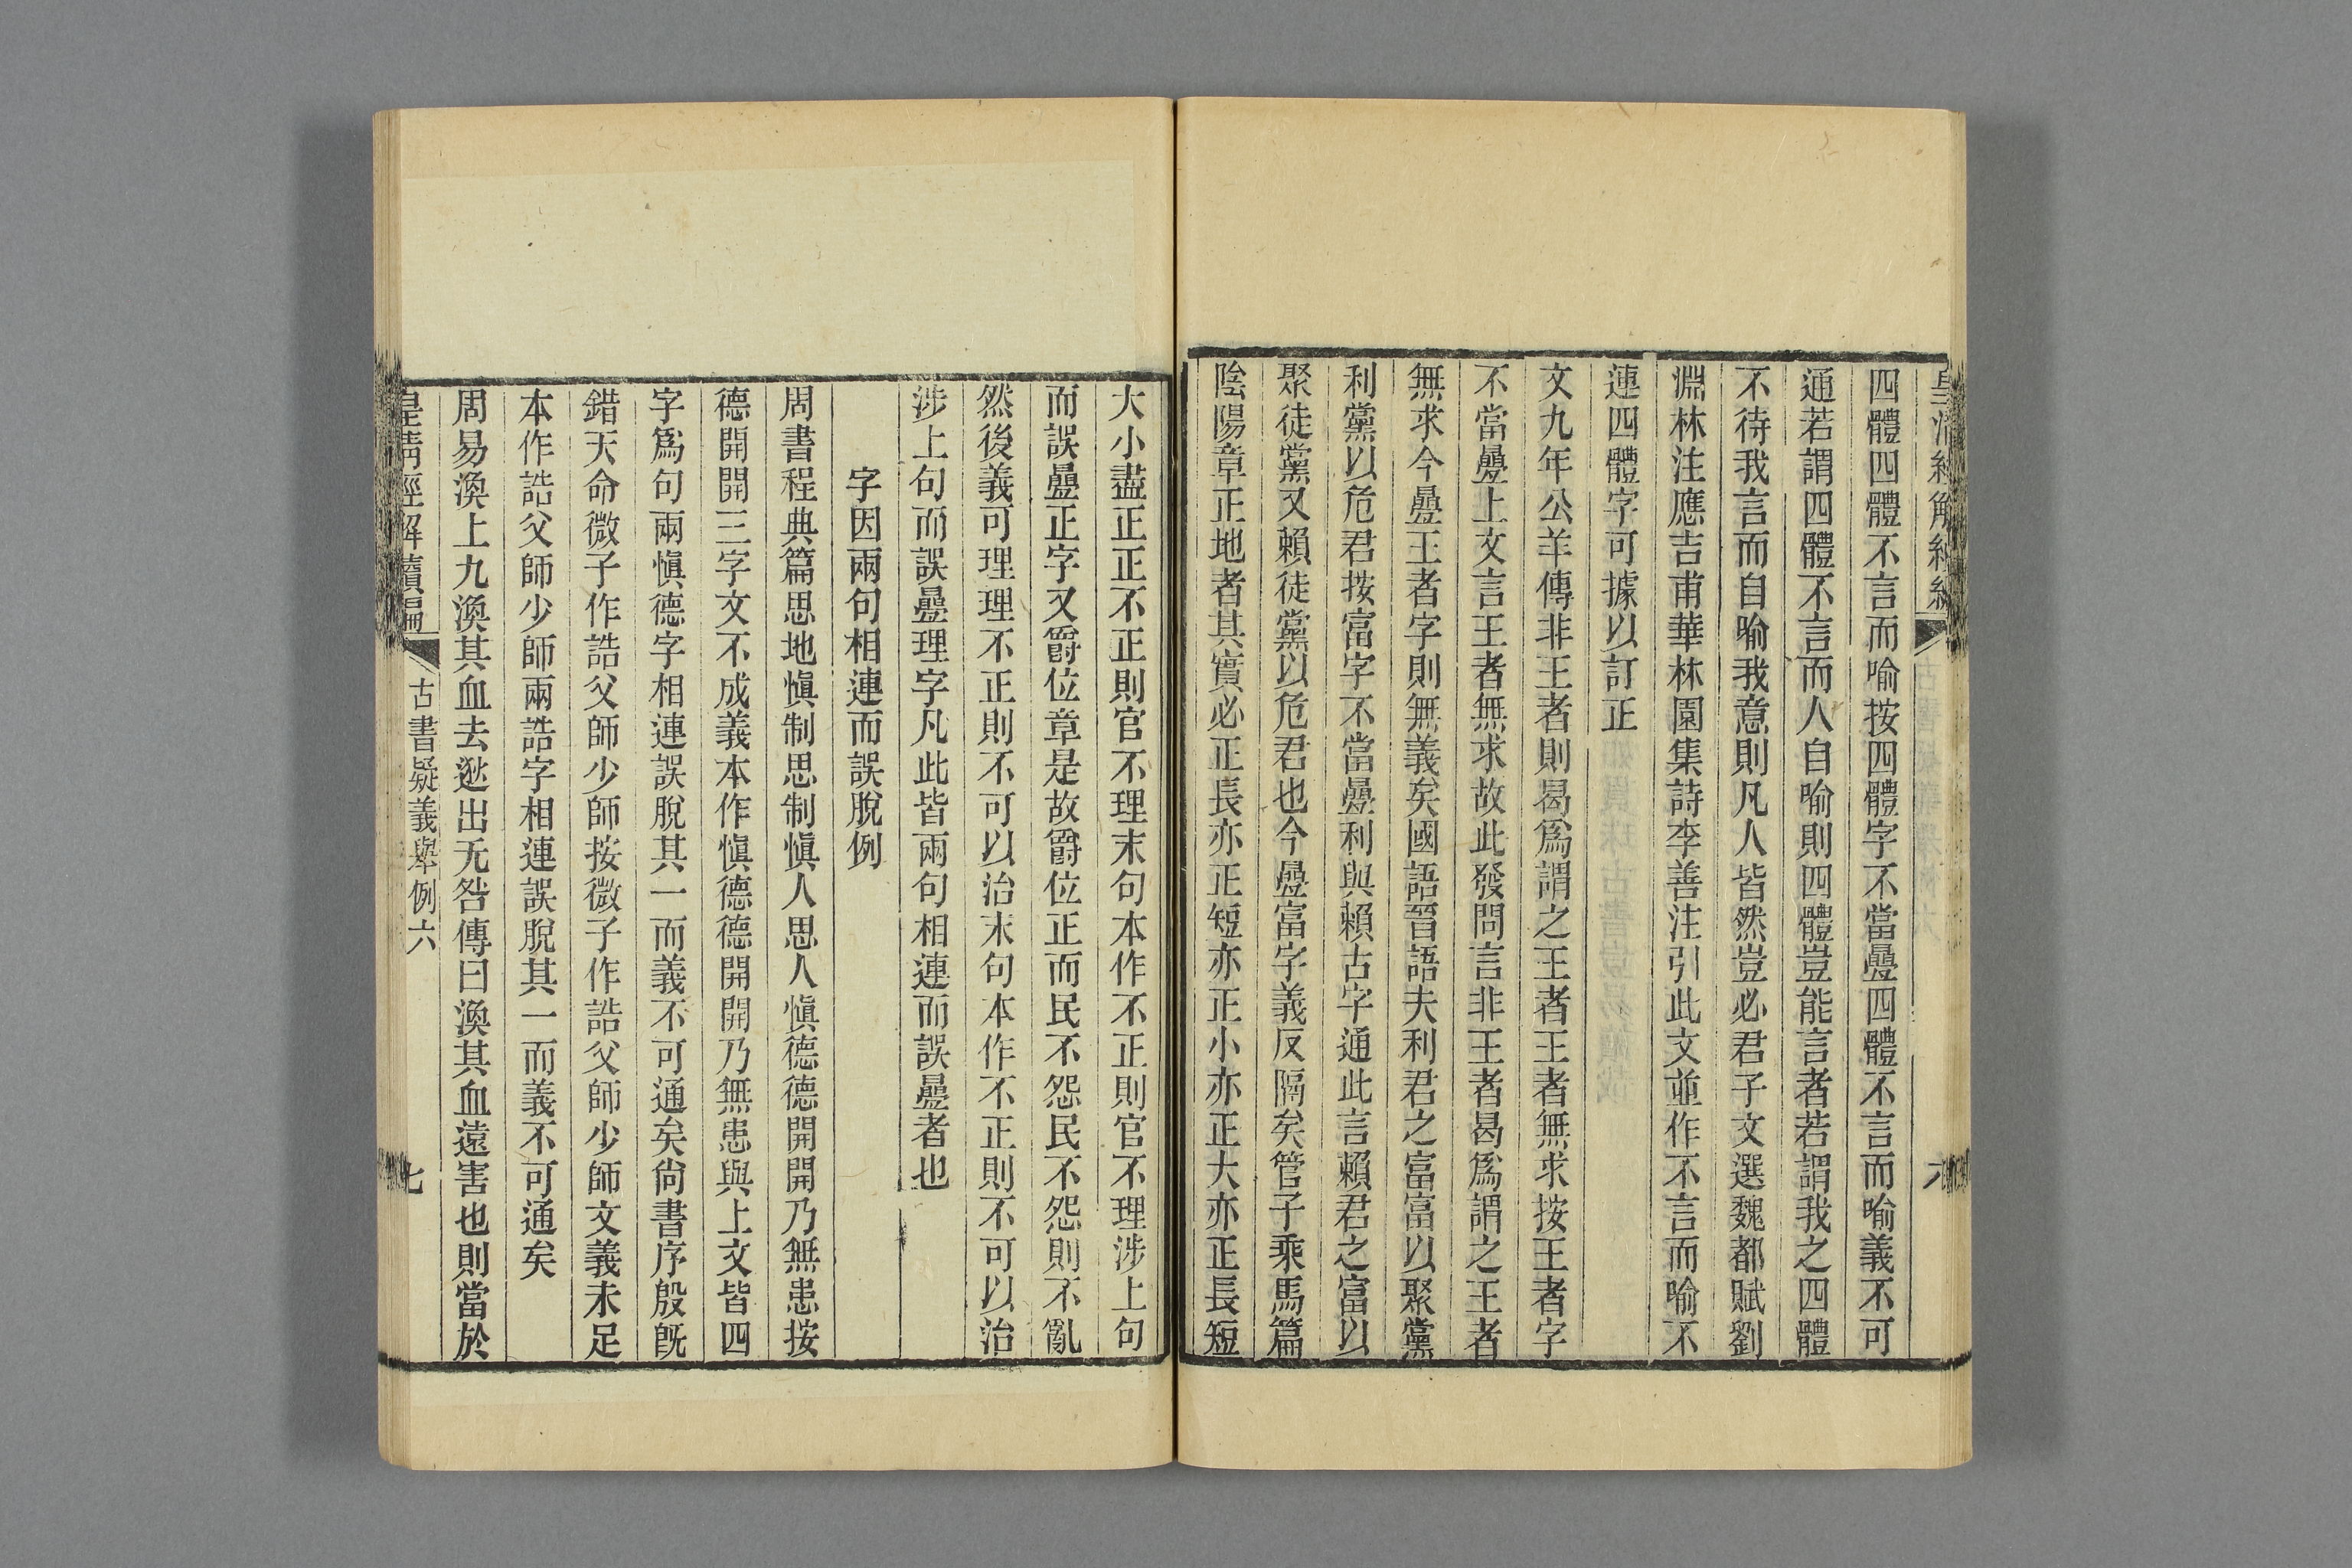 皇清經解續編
四體四體不言而喻按四體字不當疊四體不言而喻義不可
通若謂四體不言而人自喻則四體豈能言者若謂我之四體
不待我言而自喻我意則凡人皆然豈必君子文選魏都賦劉
淵林注應吉甫華林園集詩李善注引此文並作不言而喻不
連四體字可據以訂正
文九年公羊傳非王者則曷爲謂之王者王者無求按王者字
不當疊上文言王者無求故此發問言非王者曷爲謂之王者
無求今疊王者字則無義矣國語晉語夫利君之富富以聚黨
利黨以危君按富字不當疊利與賴古字通此言賴君之富以
聚徒黨又賴徒黨以危君也今疊富字義反隔矣管子乘馬篇
陰陽章正地者其實必正長亦正短亦正小亦正大亦正長短
大小盡正正不正則官不理末句本作不正則官不理涉上句
而誤疊正字又爵位章是故爵位正而民不怨民不怨則不亂
然後義可理理不正則不可以治末句本作不正則不可以治
涉上句而誤疊理字凡此皆兩句相連而誤疊者也
字因兩句相連而誤脫例
周書程典篇思地愼制思制愼人思人愼德德開開乃無患按
德開開三字文不成義本作愼德德開開乃無患與上文皆四
字爲句兩愼德字相連誤脫其一而義不可通矣尙書序殷旣
錯天命微子作誥父師少師按微子作誥父師少師文義未足
本作誥父師少師兩誥字相連誤脫其一而義不可通矣
周易渙上九渙其血去逖出无咎傳曰渙其血遠害也則當於
皇清經解續編 古書疑義舉例六 七